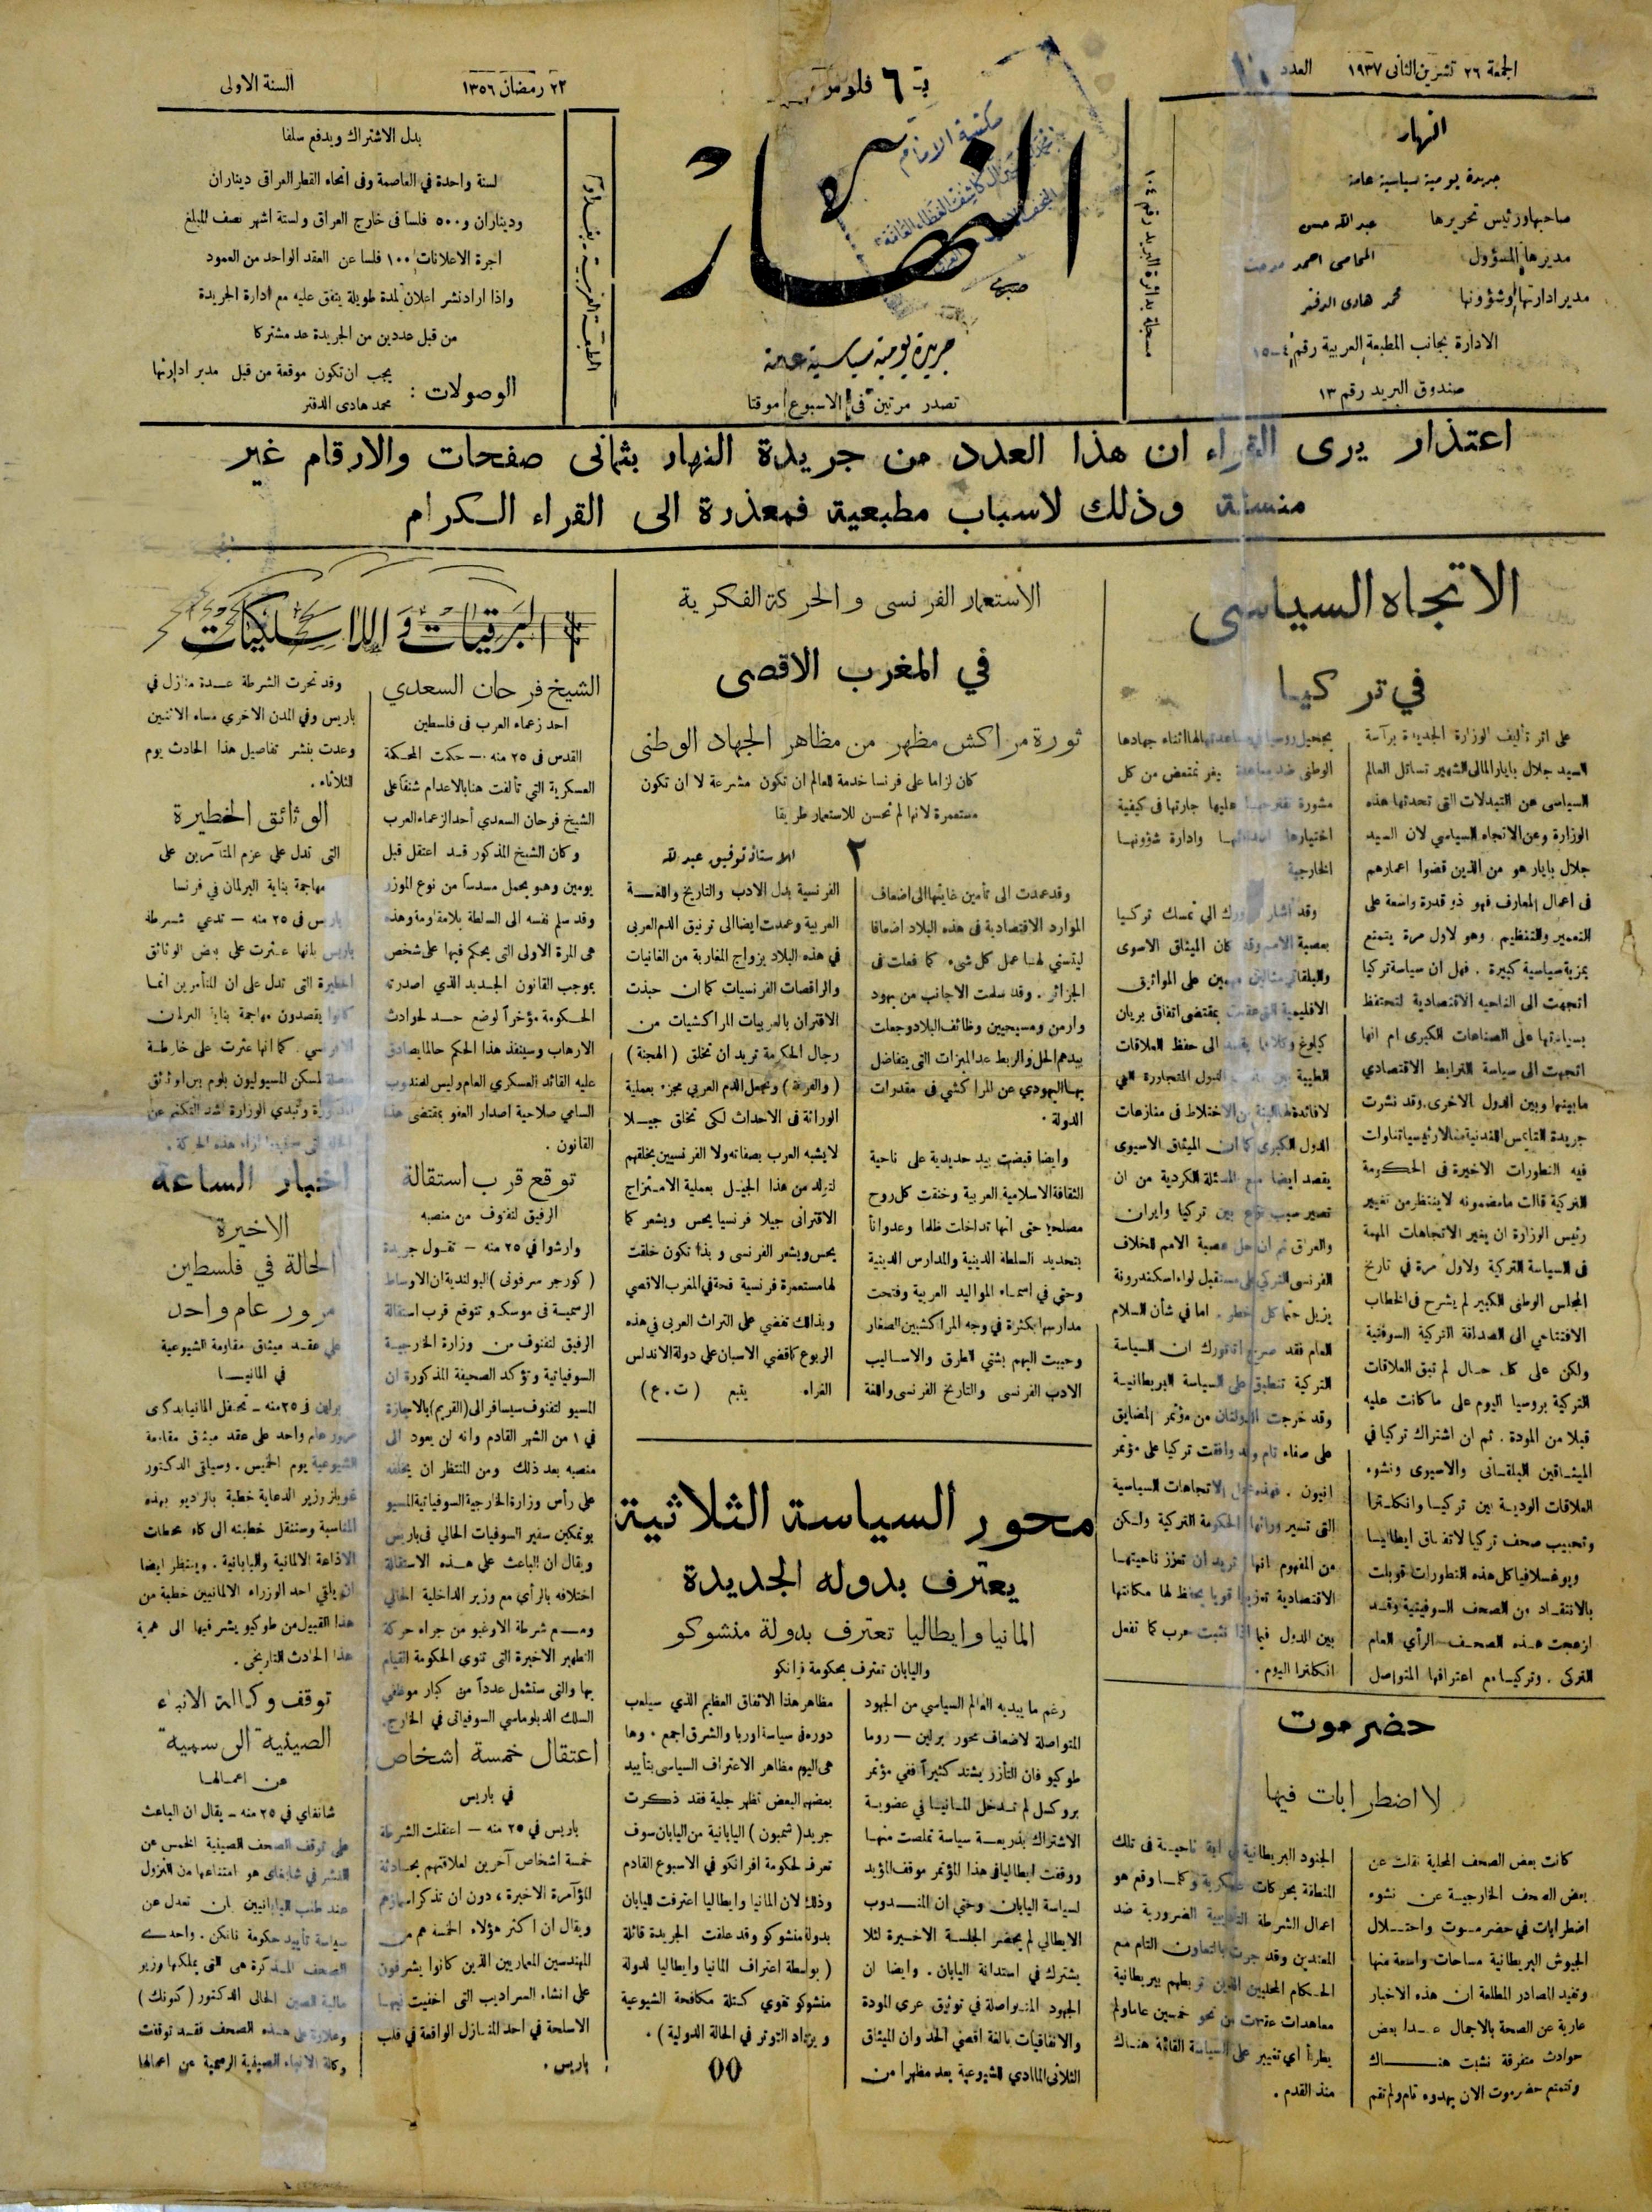 الجمعة ٢٦ تشرين الثانى ١٩٣٧
العدد
بـ ٦ فلوس
٢٢ رمضان ١٣٥٦
السنة الاولى
النهار
جريدة يومية سياسية عامة
صاحبها ورئيس تحريرها عبد الله حسن
مديرها المسؤول المحامى احمد
مدير ادارتها وشؤونها محمد هادى الدفتر
الادارة بجانب المطبعة العربية رقم ٤-١٥
صندوق البريد رقم ١٣
مسجلة بدائرة البريد رقم ١٠٤
النهار
جريدة يومية سياسية عامة
تصدر مرتين فى الاسبوع موقتا
المطبعة العربية - بغداد
بدل الاشتراك ويدفع سلفا
لسنة واحدة في العاصمة وفى انحاء القطر العراقى ديناران
وديناران و٥٠٠ فلسا فى خارج العراق ولستة اشهر نصف المبلغ
اجرة الاعلانات ١٠٠ فلسا عن العقد الواحد من العمود
واذا اراد نشر اعلان لمدة طويلة يتفق عليه مع ادارة الجريدة
من قبل عددين من الجريدة عد مشتركا
الوصولات : يجب ان تكون موقعة من قبل مدير ادارتها
محمد هادى الدفتر
اعتذار يرى القراء ان هذا العدد من جريدة النهار بثمانى صفحات والارقام غير
منسقة وذلك لاسباب مطبعية فمعذرة الى القراء السكرام
الاتجاه السياسى
في تركيا
على اثر تأليف الوزارة الجديدة برآسة
السيد جلال بايار المالى الشهير تسائل العالم
السياسى عن التبدلات التى تحدثها هذه
الوزارة وعن الاتجاه السياسي لان السيد
جلال بايار هو من الذين قضوا اعمارهم
فى اعمال المعارف فهو ذو قدرة واضعة على
التعمير والتنظيم . وهو لاول مرة يتمتع
بمزية سياسية كبيرة . فهل ان سياسة تركيا
اتجهت الى الناحيه الاقتصادية لتحتفظ
بسيادتها على الصناعات الكبرى ام انها
اتجهت الى سياسة الترابط الاقتصادي
مابينها وبين الدول الاخرى . وقد نشرت
جريدة التايمس اللندنية مقالا رئيسيا تناولت
فيه التطورات الاخيرة فى الحكومة
التركية قالت مامضمونه لاينتظر من تغيير
رئيس الوزارة ان يغير الاتجاهات المهمة
فى السياسة التركية ولاول مرة في تاريخ
المجلس الوطنى الكبير لم يشرح فى الخطاب
الافتتاحي الى الصداقة التركية السوفتية
ولكن على كل حال لم تبق العلاقات
التركية بروسيا اليوم على ما كانت عليه
قبلا من المودة . ثم ان اشتراك تركيا في
الميثاقين البلقانى والاسيوى ونشوء
العلاقات الودية بين تركيا وانكلترا
وتحبيب صحف تركيا لاتفاق ايطاليا
ويوغسلافيا كل هذه التطورات قوبلت
بالانتقاد من الصحف السوفيتية وقد
ازعجت هذه الصحف الرأي العام
التركى . وتركيا مع اعترافها المتواصل
بجميل روسيا في مساعدتها لها اثناء جهادها
الوطنى ضد
مشورة تقترحها عليها جارتها فى كيفية
اختيارها اصدقائها وادارة شؤونها
الخارجية
وقد اشار الى تمسك تركيا
بعصبة الامم وقد كان الميثاق الاسوى
والبلقانى على المواثيق
الاقليمية بمقتضى اتفاق بريان
كيلوغ الى حفظ العلاقات
الطيبة بين الدول المتجاورة التي
لافائدة من الاختلاط فى منازعات
الدول الكبرى كما ان الميثاق الاسيوى
يقصد ايضا منع المسئلة الكردية من ان
تصير سبب نزاع بين تركيا وايران
والعراق ثم ان حل عصبة الامم للخلاف
الفرنسى التركي على مستقبل لواء اسكندرونة
يزيل حتما كل خطر . اما في شأن السلام
العام فقد صرح اتاتورك ان السياسة
التركية تنطبق على السياسة البريطانية
وقد خرجت الدولتان من مؤتمر المضايق
على صفاء تام وقد وافقت تركيا على مؤتمر
انيون . فهذه هي الاتجاهات السياسية
التى تسير ورائها الحكومة التركية ولكن
من المفهوم انها تريد ان تعزز ناحيتها
الاقتصادية تعزيزا قويا يحفظ لها مكانتها
بين الدول فيما اذا نشبت حرب كما تفعل
انكلترا اليوم .
حضرموت
لا اضطرابات فيها
كانت بعض الصحف المحلية نقلت عن
بعض الصحف الخارجية عن نشوء
اضطرابات في حضرموت واحتلال
الجيوش البريطانية مساحات واسعة منها
وتفيد المصادر المطلعة ان هذه الاخبار
عارية عن الصحة بالاجمال عدا بعض
حوادث متفرقة نشبت هناك
وتتمتع حضرموت الان بهدوء تام ولم تقم
الجنود البريطانية فى اية ناحية فى تلك
المنطقة بحركات عسكرية وكلما وقع هو
اعمال الشرطة التأديبية الضرورية ضد
المعتدين وقد جرت بالتعاون التام مع
الحكام المحليين الذين تربطهم ببريطانية
معاهدات عقدت من نحو خمسين عاما ولم
يطرأ اى تغيير على السياسة القائمة هناك
منذ القدم .
الاستعمار الفرنسى والحركة الفكرية
في المغرب الاقصى
ثورة مراكش مظهر من مظاهر الجهاد الوطنى
كان لزاما على فرنسا خدمة للعالم ان تكون مشرعة لا ان تكون
مستعمرة لانها لم تحسن للاستعمار طريقا
٢
للاستاذ توفيق عبد الله
وقد عمدت الى تأمين غايتها الى اضعاف
الموارد الاقتصادية فى هذه البلاد اضعافا
ليتسنى لها عمل كل شىء كما فعلت فى
الجزائر . وقد سلمت الاجانب من يهود
وارمن ومسيحيين وظائف البلاد وجعلت
بيدهم الحل والربط عدا الميزات التى يتفاضل
بها اليهودي عن المراكشي فى مقدرات
الدولة .
وايضا قبضت بيد حديدية على ناحية
الثقافة الاسلامية العربية وخنقت كل روح
مصلحة حتى انها تداخلت ظلما وعدوانا
بتحديد السلطة الدينية والمدارس الدينية
وحتى في اسماء المواليد العربية وفتحت
مدارسها بكثرة في وجه المراكشيين الصغار
وحببت اليهم بشتي الطرق والاساليب
الادب الفرنسى والتاريخ الفرنسى واللغة
الفرنسية بدل الادب والتاريخ واللغة
العربية وعمدت ايضا الى ترنيق الدم العربى
في هذه البلاد بزواج المغاربة من الغانيات
والراقصات الفرنسيات كما ان حبذت
الاقتران بالعربيات المراكشيات من
رجال الحكومة تريد ان تخلق ( الهجنة )
( والفرقة ) وتجعل الدم العربي محزء بعملية
الوراثة فى الاحداث لكى تخلق جيلا
لايشبه العرب بصفاته ولا الفرنسيين بخلقهم
لتولد من هذا الجيل بعملية الامتزاج
الاقترانى جيلا فرنسيا يحس ويشعر كما
يحس ويشعر الفرنسى وبذا تكون خلقت
لها مستعمرة فرنسية قحة في المغرب الاقصى
وبذالك تقضي على التراث العربى في هذه
الربوع كما قضى الاسبان على دولة الاندلس
الغراء يتبع (ت . ع)
محور السياسة الثلاثية
يعترف بدوله الجديدة
المانيا وايطاليا تعترف بدولة منشوكو
واليابان تعترف بحكومة فرانكو
رغم ما يبديه العالم السياسي من الجهود
المتواصلة لاضعاف محور برلين — روما
طوكيو فان التأزر يشتد كثيراً ففي مؤتمر
بروكسل لم تدخل المانيا في عضوية
الاشتراك بذريعة سياسة تملصت منها
ووقفت ايطاليا فى هذا المؤتمر موقف المؤيد
لسياسة اليابان وحتي ان المندوب
الايطالي لم يحضر الجلسة الاخيرة لئلا
يشترك في استدانة اليابان . وايضا ان
الجهود المتواصلة في توثيق عرى المودة
والاتفاقيات بالغة اقصي الحد وان الميثاق
الثلاثى المادي للشيوعية يعد مظهرا من
مظاهر هذا الاتفاق العظيم الذي سيلعب
دوره في سياسة اوربا والشرق اجمع . وها
هى اليوم مظاهر الاعتراف السياسى بتأييد
بعضهم البعض تظهر جلية فقد ذكرت
جريدة (شمبون) اليابانية من اليابان سوف
تعرف لحكومة افرانكو في الاسبوع القادم
وذلك لان المانيا وايطاليا اعترفت لليابان
بدولة منشوكو وقد علقت الجريدة قائلة
( بواسطة اعتراف المانيا وايطاليا لدولة
منشوكو تقوي كتلة مكافحة الشيوعية
ويزداد التوتر في الحالة الدولية ) .
البرقيات واللاسلكيات
الشيخ فرحان السعدي
احد زعماء العرب فى فلسطين
القدس فى ٢٥ منه — حكمت المحكمة
العسكرية التي تألفت هنا بالاعدام شنقاً على
الشيخ فرحان السعدي أحد الزعماء العرب
وكان الشيخ المذكور قد اعتقل قبل
يومين وهو يحمل مسدسا من نوع الموزر
وقد سلم نفسه الى السلطة بلا مقاومة وهذه
هى المرة الاولى التى يحكم فيها على شخص
بموجب القانون الجديد الذي اصدرته
الحكومة مؤخراً لوضع حد لحوادث
الارهاب وسينفذ هذا الحكم حالما يصادق
عليه القائد العسكري العام وليس للمندوب
السامي صلاحية اصدار العفو بمقتضى هذا
القانون .
توقع قرب استقالة
الرفيق لتفنوف من منصبه
وارشوا في ٢٥ منه — تقول جريدة
( كورجر سرفونى ) البولندية ان الاوساط
الرسمية فى موسكو تتوقع قرب استقالة
الرفيق لتفنوف من وزارة الخارجية
السوفياتية وتؤكد الصحيفة المذكورة ان
المسيو لتفنوف سيسافر الى (القريم) بالاجازة
في ١ من الشهر القادم وانه لن يعود الى
منصبه بعد ذلك ومن المنتظر ان يخلفه
على رأس وزارة الخارجية السوفياتية المسيو
بوتمكين سفير السوفيات الحالي فى باريس
ويقال ان الباعث على هذه الاستقالة
اختلافه بالرأي مع وزير الداخلية الحالي
ومع شرطة الاوغبو من جراء حركة
التطهير الاخيرة التى تنوى الحكومة القيام
بها والتى ستشمل عدداً من كبار موظفي
السلك الدبلوماسي السوفياتى في الخارج .
اعتقال خمسة اشخاص
في باريس
باريس في ٢٥ منه — اعتقلت الشرطة
خمسة اشخاص آخرين لعلاقتهم بحادثة
المؤآمرة الاخيرة ، دون ان تذكر اسماءهم
ويقال ان اكثر هؤلاء الخمسة هم من
المهندسين المعماريين الذين كانوا يشرفون
على انشاء السراديب التى اخفيت فيها
الاسلحة في احد المنازل الواقعة في قلب
باريس .
وقد تحرت الشرطة عدة منازل في
باريس وفي المدن الاخري مساء الاثنين
وعدت بنشر تفاصيل هذا الحادث يوم
الثلاثاء .
الوثائق الخطيرة
التى تدل على عزم المتآمرين على
مهاجمة بناية البرلمان في فرنسا
باريس فى ٢٥ منه — تدعي شرطة
باريس بانها عثرت على بعض الوثائق
الخطيرة التى تدل على ان المتأمرين انما
كانوا يقصدون مهاجمة بناية البرلمان
الافرنسي . كما انها عثرت على خارطة
لمسكن المسيو ليون بلوم بين الوثائق
وتبدي الوزارة اشد التكتم عن
ازاء هذه الحركة .
اخبار الساعة
الاخيرة
الحالة في فلسطين
مرور عام واحد
على عقد ميثاق مقاومة الشيوعية
في المانيا
برلين فى ٢٥ منه — تحتفل المانيا بذكرى
مرور عام واحد على عقد ميثاق مقاومة
الشيوعية يوم الخميس . وسيلقى الدكتور
غوبلز وزير الدعاية خطبة بالراديو بهذه
المناسبة وستنقل خطبته الى كافة محطات
الاذاعة الالمانية واليابانية . وينتظر ايضا
ان يلقي احد الوزراء الالمانيين خطبة من
هذا القبيل من طوكيو يشر فيها الى اهمية
هذا الحادث التاريخى .
توقف وكالة الانباء
الصينية الرسمية
عن اعمالها
شانغاي في ٢٥ منه — يقال ان الباعث
على توقف الصحف الصينية الخمس عن
النشر في شانغاى هو امتناعها من النزول
عند طلب اليابانيين بان تعدل عن
سياسة تأييد حكومة نانكن . واحدى
الصحف المذكرة هى التى يملكها وزير
مالية الصين الحالى الدكتور (كونك)
وعلاوة على هذه الصحف فقد توقفت
وكالة الانباء الصينية الرسمية عن اعمالها